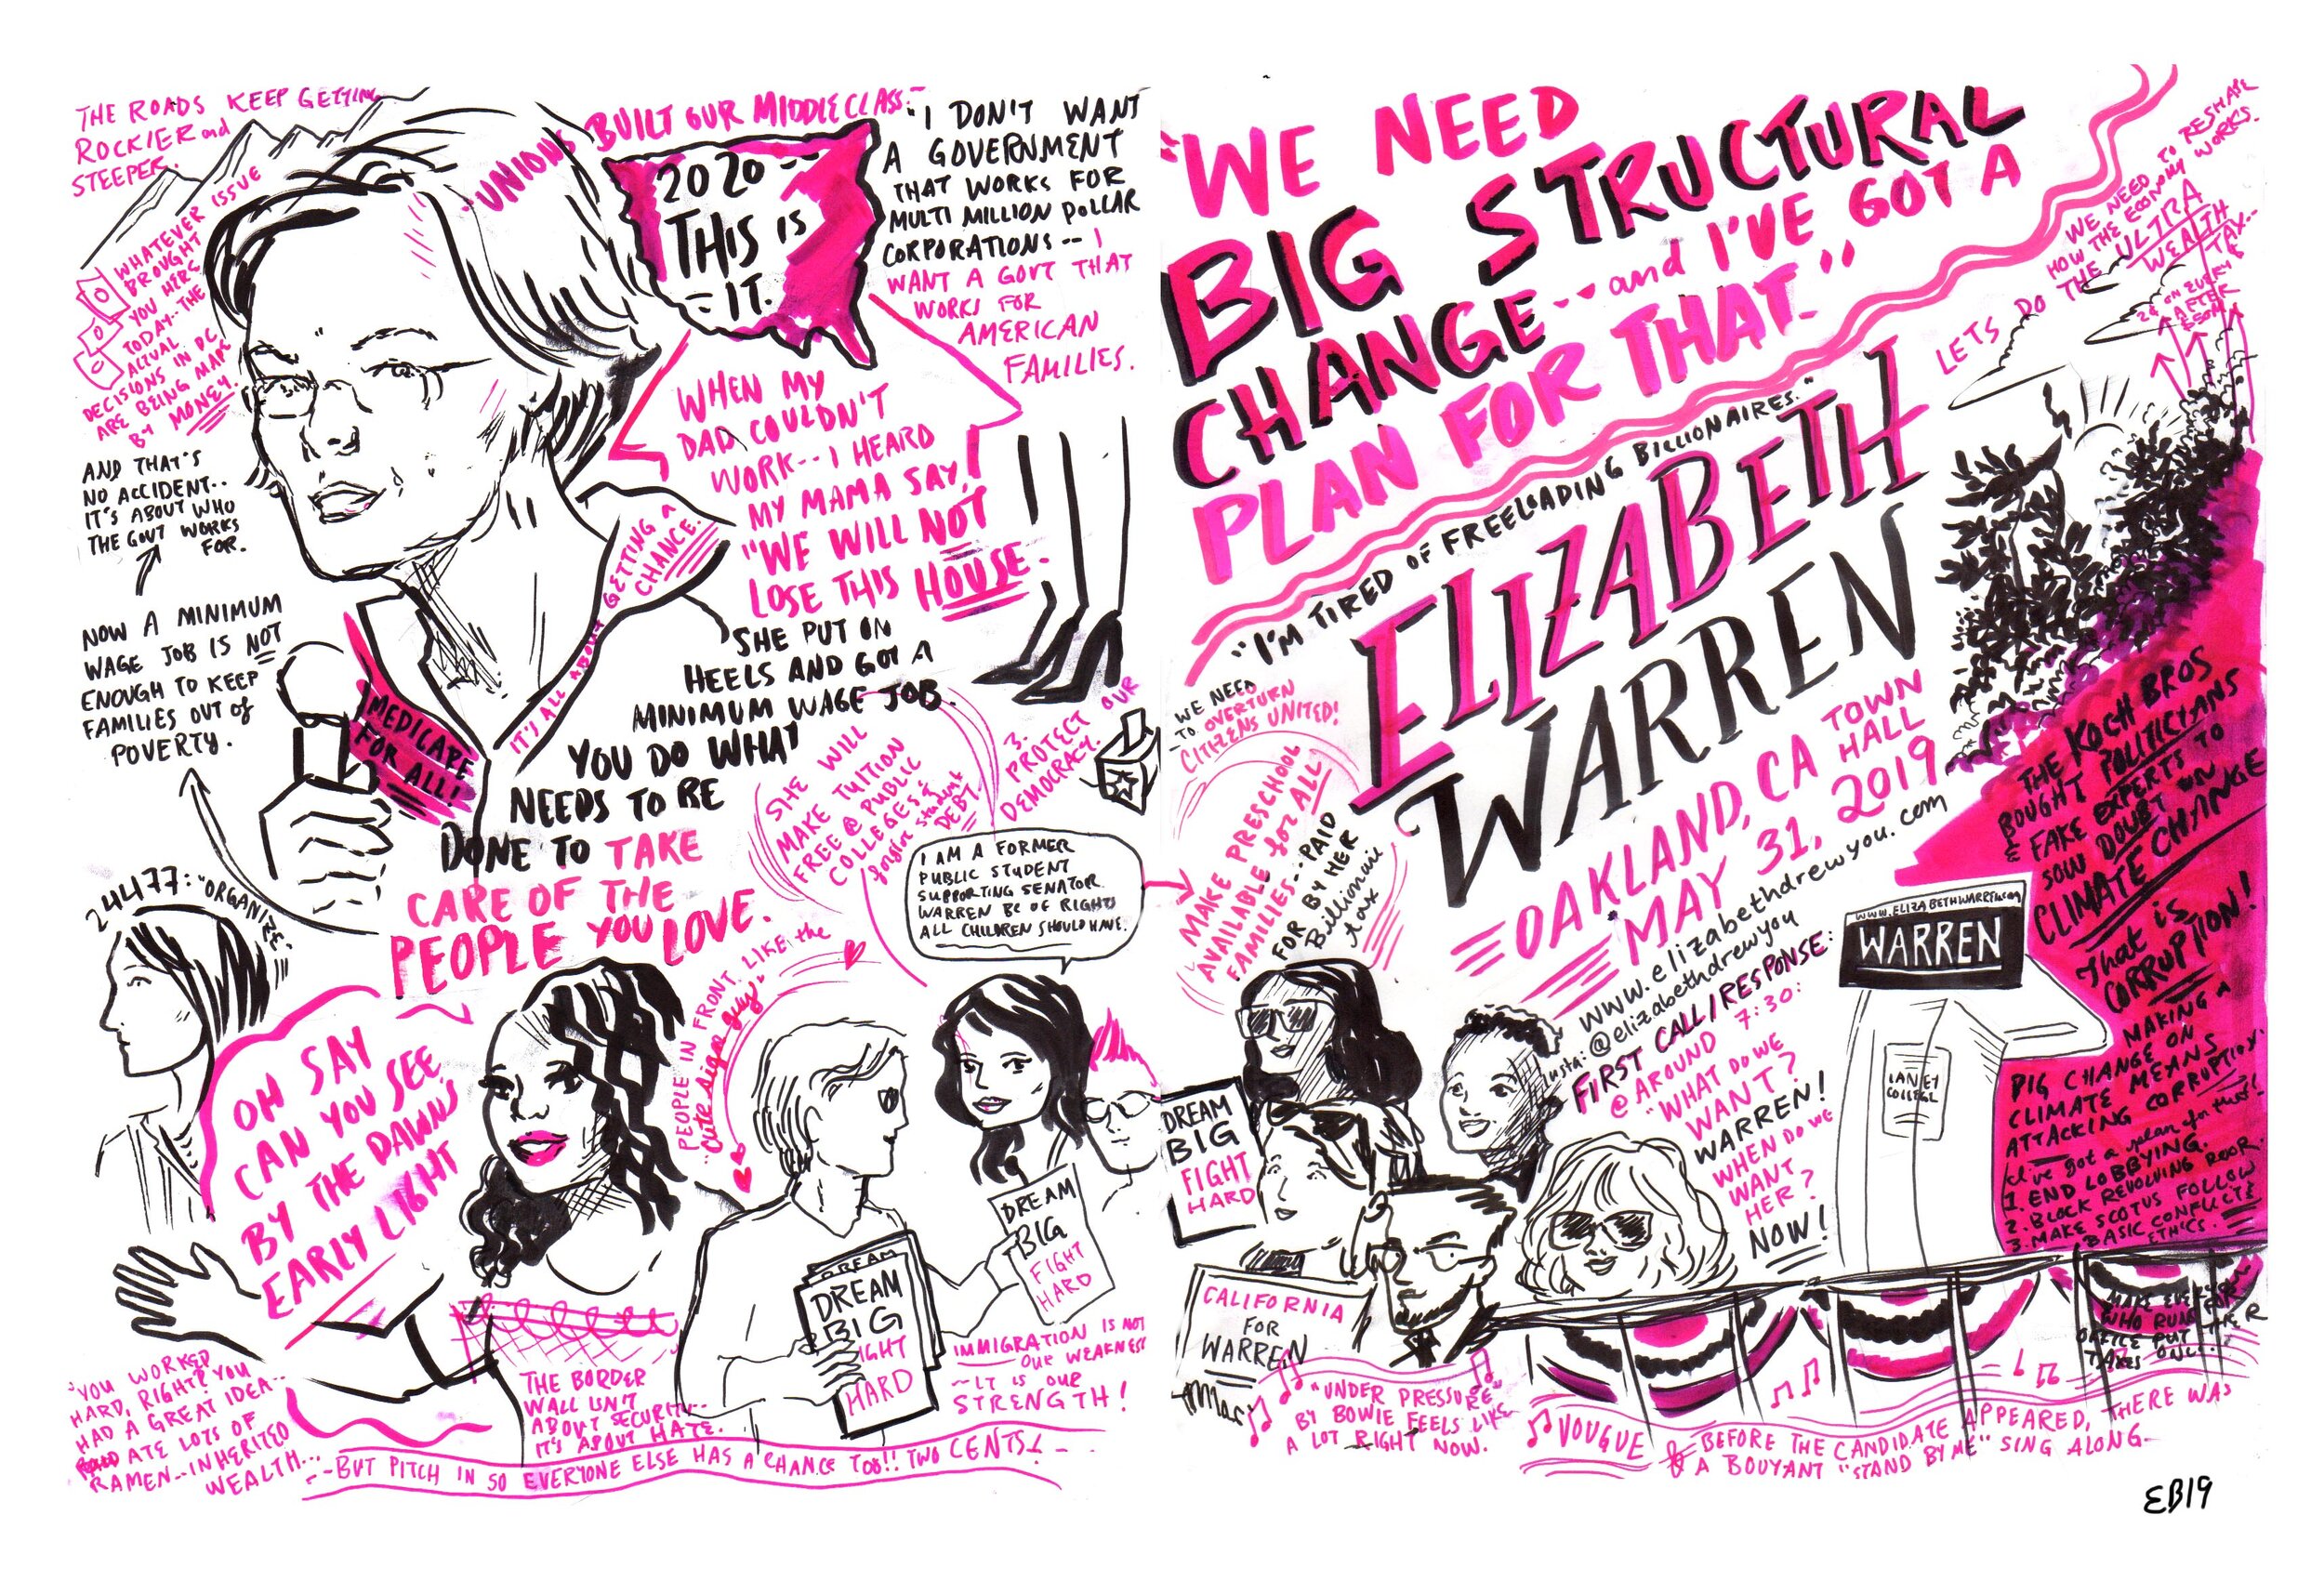 THE ROADS KEEP GETTING
ROCKIER and
STEEPER.
WHATEVER ISSUE
BROUGHT
YOU HERE
TODAY--THE
DECISIONS IN DC
ARE BEING MADE
BY MONEY.
AND THAT'S
NO ACCIDENT..
IT'S ABOUT WHO
THE GOVT WORKS
FOR.
NOW A MINIMUM
WAGE JOB IS NOT
ENOUGH TO KEEP
FAMILIES OUT OF
POVERTY.
"UNIONS BUILT OUR MIDDLE CLASS-"
2020--
THIS IS
IT.
"I DON'T WANT
A GOVERNMENT
THAT WORKS FOR
MULTI MILLION DOLLAR
CORPORATIONS -- I
WANT A GOVT THAT
WORKS FOR
AMERICAN
FAMILIES.
WHEN MY
DAD COULDN'T
WORK-- I HEARD
MY MAMA SAY,
"WE WILL NOT
LOSE THIS HOUSE.
SHE PUT ON
HEELS AND GOT A
MINIMUM WAGE JOB.
YOU DO WHAT
NEEDS TO BE
DONE TO TAKE
CARE OF THE
PEOPLE YOU LOVE.
IT'S ALL ABOUT GETTING A
CHANCE.
MEDICARE
FOR ALL!
SHE WILL
MAKE TUITION
FREE @ PUBLIC
COLLEGES &
forgive student
DEBT.
3.
PROTECT OUR
DEMOCRACY.
I AM A FORMER
PUBLIC STUDENT
SUPPORTING SENATOR
WARREN BC OF RIGHTS
ALL CHILDREN SHOULD HAVE.
24477: "ORGANIZE."
OH SAY
CAN YOU SEE
BY THE DAWNS
EARLY LIGHT
PEOPLE IN FRONT LIKE the
"cute sign guy"
DREAM
DREAM
BIG
FIGHT
HARD
DREAM
BIG
FIGHT
HARD
"YOU WORKED
HARD, RIGHT? YOU
HAD A GREAT IDEA--
ATE LOTS OF
RAMEN--INHERITED
WEALTH...
THE BORDER
WALL ISN'T
ABOUT SECURITY--
IT'S ABOUT HATE.
IMMIGRATION IS NOT
OUR WEAKNESS
- IT IS OUR
STRENGTH!
--BUT PITCH IN SO EVERYONE ELSE HAS A CHANCE TOO!! TWO CENTS!--
"WE NEED
BIG STRUCTURAL
CHANGE -- and I'VE GOT A
PLAN FOR THAT."
WE NEED TO RESHAPE
HOW THE ECONOMY WORKS.
LETS DO THE ULTRA
WEALTH
TAX..
2¢ ON EVERY $
AFTER
$50M
"I'M TIRED OF FREELOADING BILLIONAIRES."
ELIZABETH
WARREN
OAKLAND, CA TOWN
HALL
MAY 31, 2019
www.elizabethdrewyou.com
Insta: @elizabethdrewyou
WE NEED
TO OVERTURN
CITIZENS UNITED!
MAKE PRESCHOOL
AVAILABLE for ALL
FAMILIES--PAID
FOR BY HER
Billionaire
tax
FIRST CALL/RESPONSE:
@ AROUND 7:30:
"WHAT DO WE
WANT?
WARREN!
WHEN DO WE
WANT
HER?
NOW!
THE KOCH BROS
BOUGHT POLITICIANS
& FAKE EXPERTS TO
SOW DOUBT ON
CLIMATE CHANGE
That is
CORRUPTION!
MAKING A
BIG CHANGE ON
CLIMATE MEANS
ATTACKING CORRUPTION.
I've got a plan for that!
1. END LOBBYING.
2. BLOCK REVOLVING DOOR
3. MAKE SCOTUS FOLLOW
BASIC CONFLICT
ETHICS.
WWW.ELIZABETHWARREN.com
WARREN
LANEY
COLLEGE
DREAM
BIG
FIGHT
HARD
CALIFORNIA
FOR
WARREN
MAKE EVERYONE
WHO RUNS FOR
OFFICE PUT THEIR
TAXES ONLINE
"UNDER PRESSURE"
BY BOWIE FEELS LIKE
A LOT RIGHT NOW.
VOUGUE
& BEFORE THE CANDIDATE APPEARED, THERE WAS
A BOUYANT "STAND BY ME" SING ALONG-
EB19